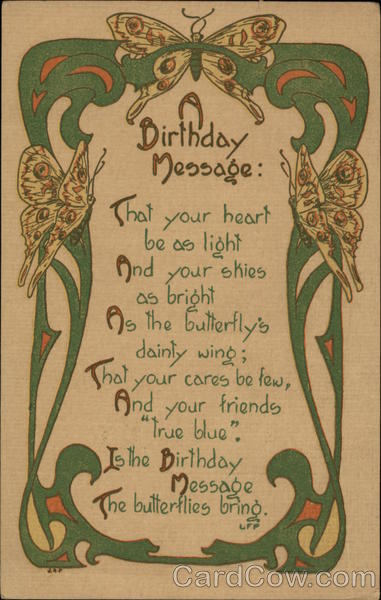 A
Birthday
Message:
That your heart
be as light
And your skies
as bright
As the butterfly's
dainty wing;
That your cares be few,
And your friends
"true blue".
Is the Birthday
Message
The butterflies bring.
LFP
CardCow.com